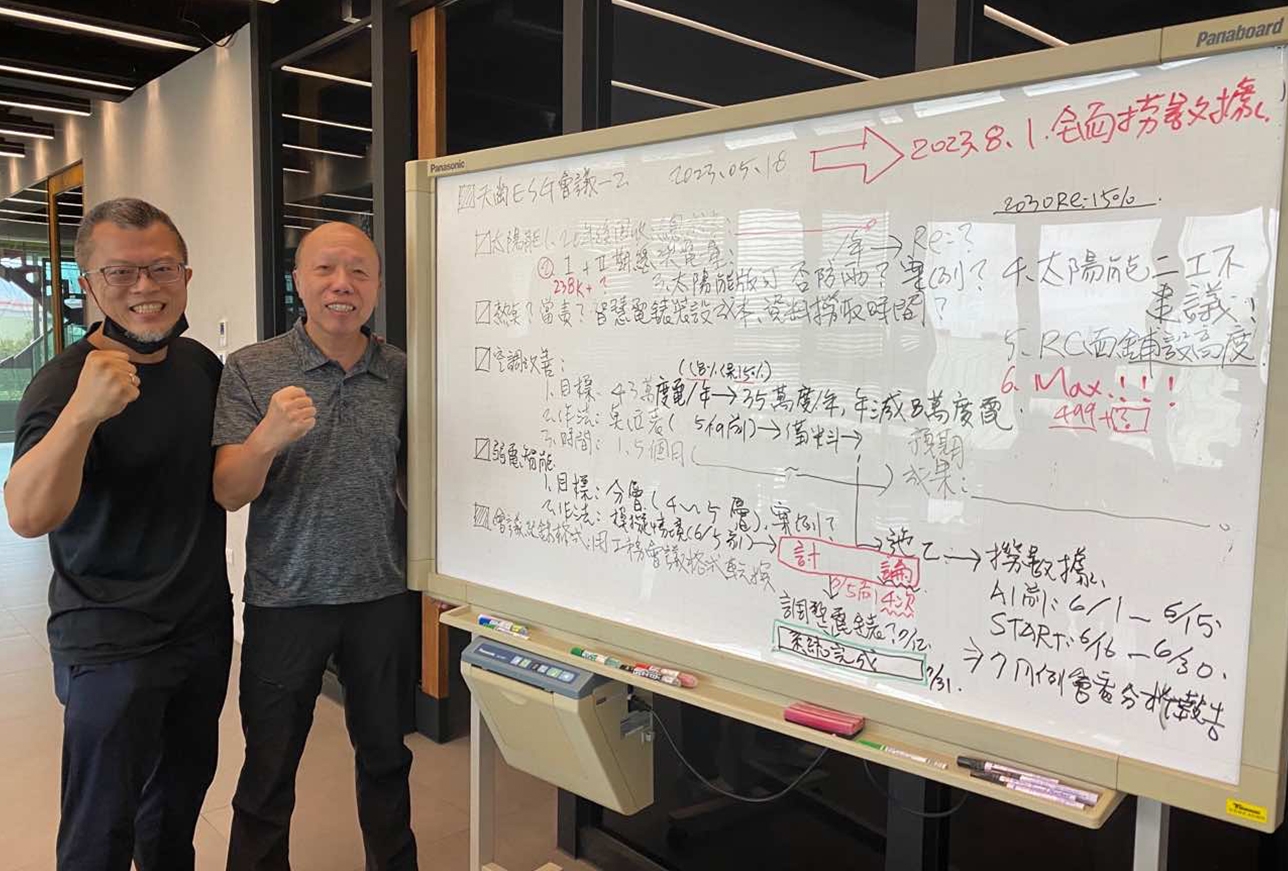 Panasonic
Panaboard
2023.8.1.全面撈數據
天幽ESG會議-2 2023.05.18
2030Re:15%
太陽能1.
/年→Re=?
② I+II期總發電量:
238K+?
3.太陽能散 否防雨?案例?
4.太陽能二工不
建議!!
熱泵?富蓄?智慧電錶裝設成本、資料撈取時間?
5.RC面鋪設高度
空調改善:
(8%保15%)
1.目標:43萬度電/年→35萬度/年,年減8萬度電
6.Max.!!!!
499+?
2.作法: (5/19前)→備料→
3.時間:1.5個月
預期
成果:
弱電智能
1.目標:分層(4~5層).案例?
2.作法:模擬情境(6/5前)→
會議記錄格式:用工務會議格式
討論
→施工→撈數據
6/5前4次
AI前:6/1-6/15.
START:6/16-6/30.
調整電錶?7/12.
系統完成
7/31.
⇒7月例會看分析報告
Panasonic